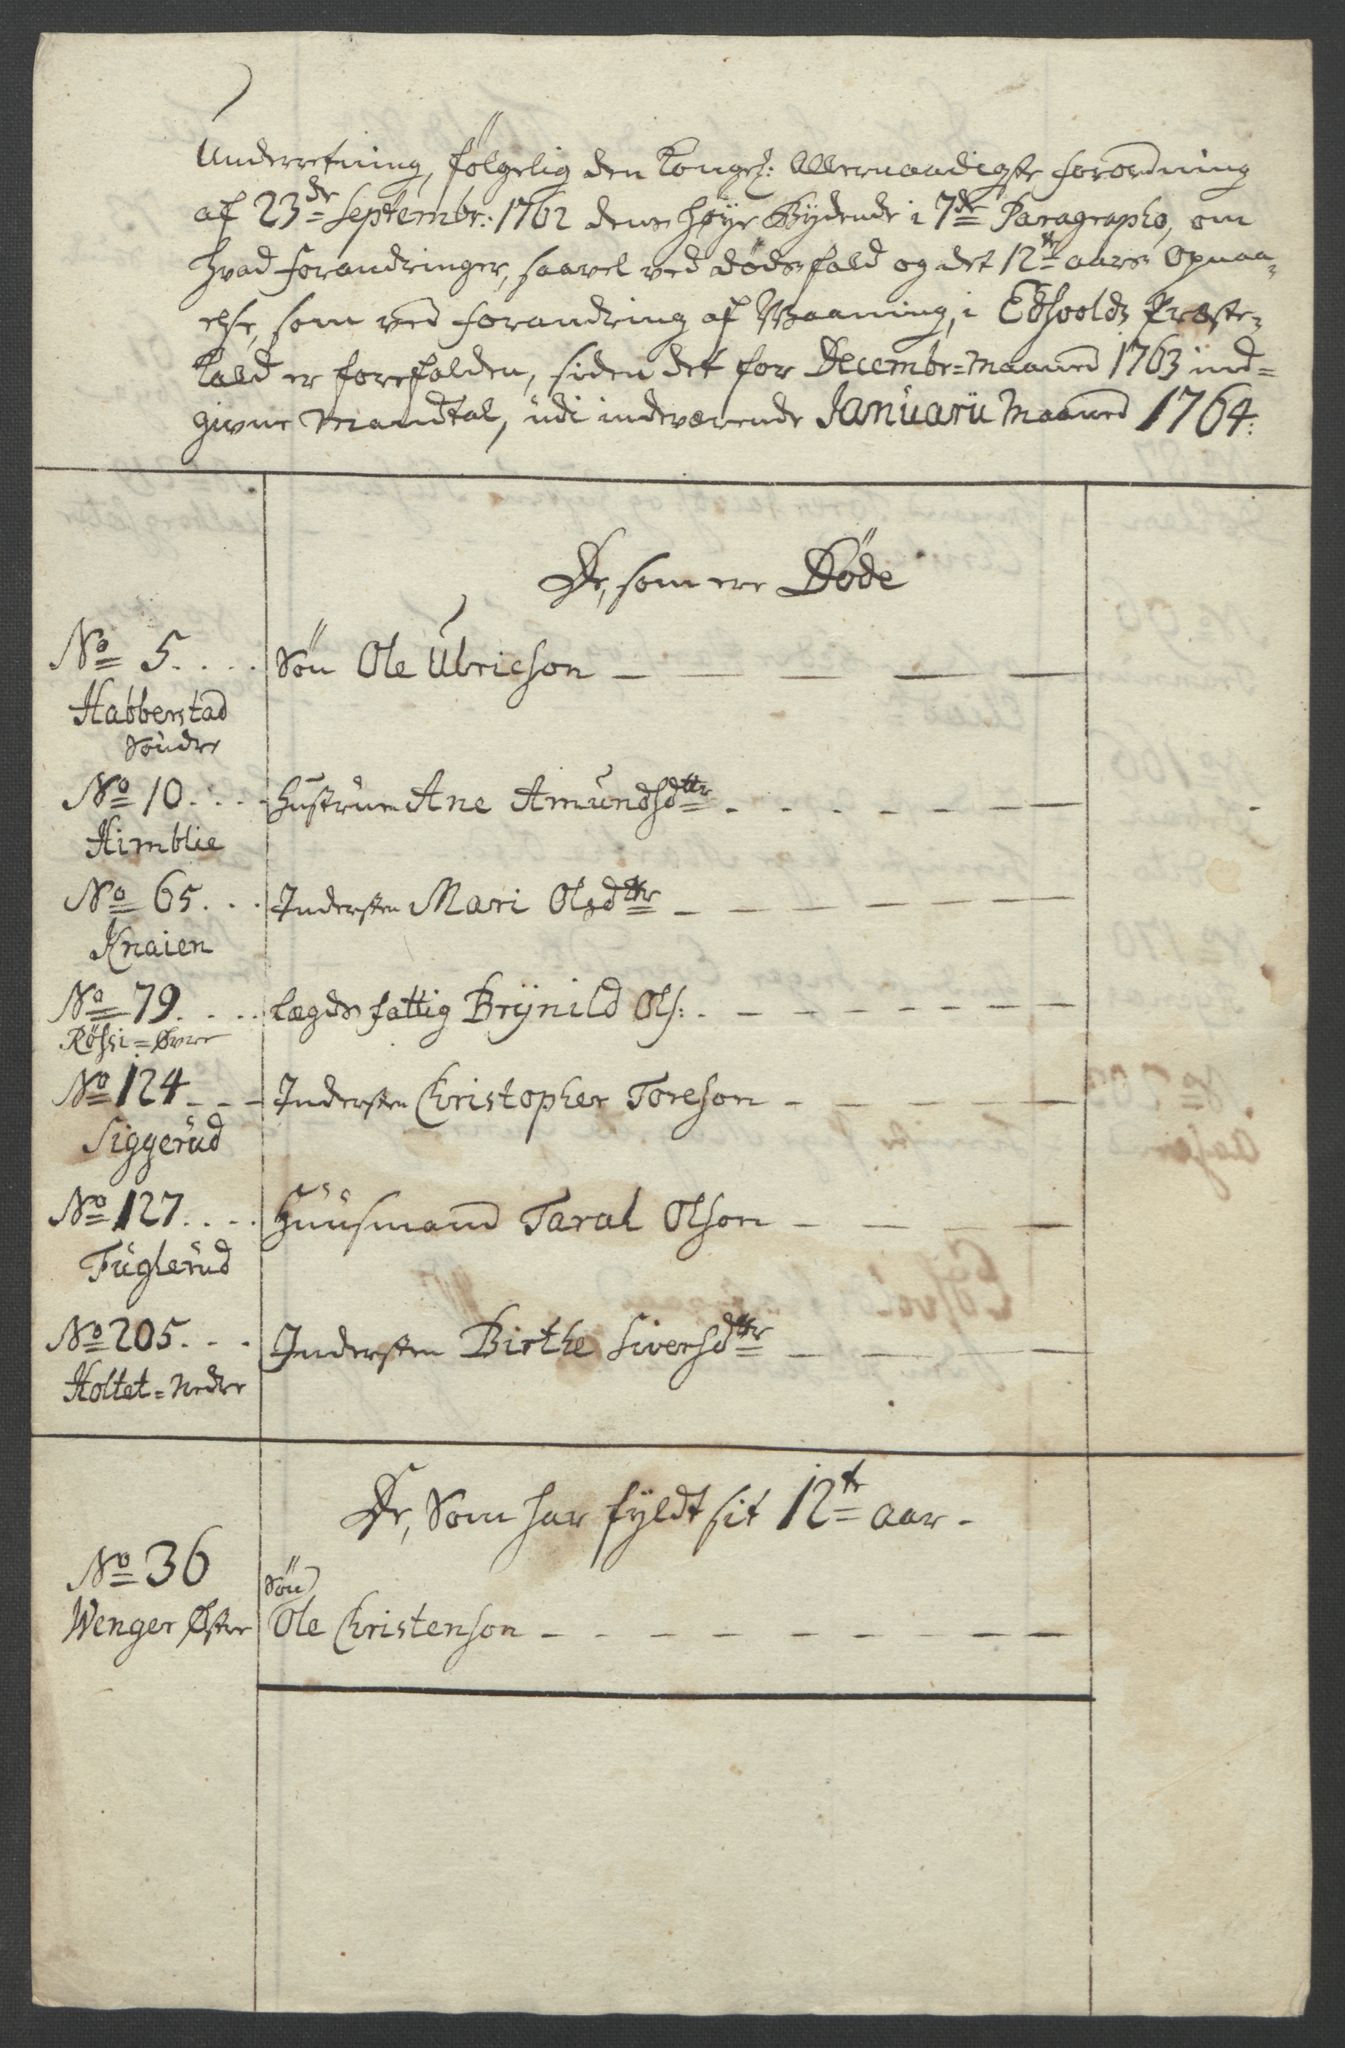 Underretning, følgelig den Kongel: Allernaadigste Forordning
af 23de Septembr: 1762 dens høye Bydende i 7de Paragrapho, om
hvad Forandringer, saavel ved Dødsfald og det 12te aars Opnaa-
else, som ved Forandring af Waaning, i Edsvolds Præste-
kald er forefalden, siden det for Decembr=Maaned 1763 ind=
givne Mandtal, udi indeværende Januarii Maaned 1764.
De, som ere Døde
No 5. . . . Søn Ole Ulricson
Habberstad
Søndre
No 10. . . . Hustruen Ane Amundsdttr
Himblie
No 65. . . Indersten Mari Olsdttr
Knaien
No 79. . . . lægds fattig Brynild Ols:
Røhsi=Øvre
No 124 Indersten Christopher Toreson
Siggerud
No 127. . . . Huusmand Taral Olson
Fuglerud
No 205. . . . Indersten Birthe Siversdttr
Holtet=Nedre
De, Som har fyldt sit 12te aar.
No 36 Søn
Wenger Østre Ole Christenson